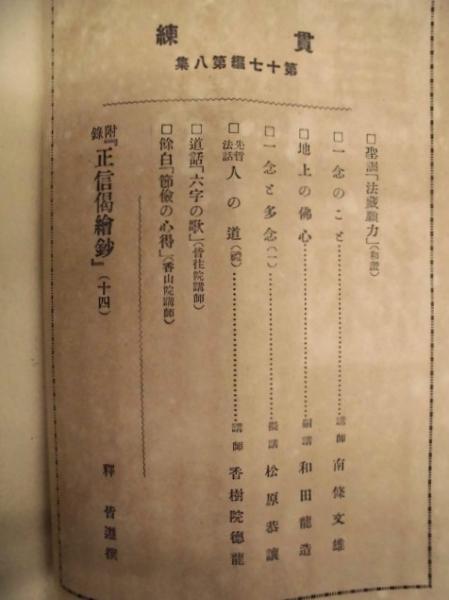 貫練
第十七編第八集
□聖訓「法蔵願力」(和讃)
□一念のこと……講師 南條文雄
□地上の佛心……嗣講 和田龍造
□一念と多念(一)……擬講 松原恭讓
□先哲法話 人の道(續)……講師 香樹院德龍
□道話「六字の歌」(皆往院講師)
□餘白「節儉の心得」(香山院講師)
附錄『正信偈繪鈔』(十四) 釋皆遵撰